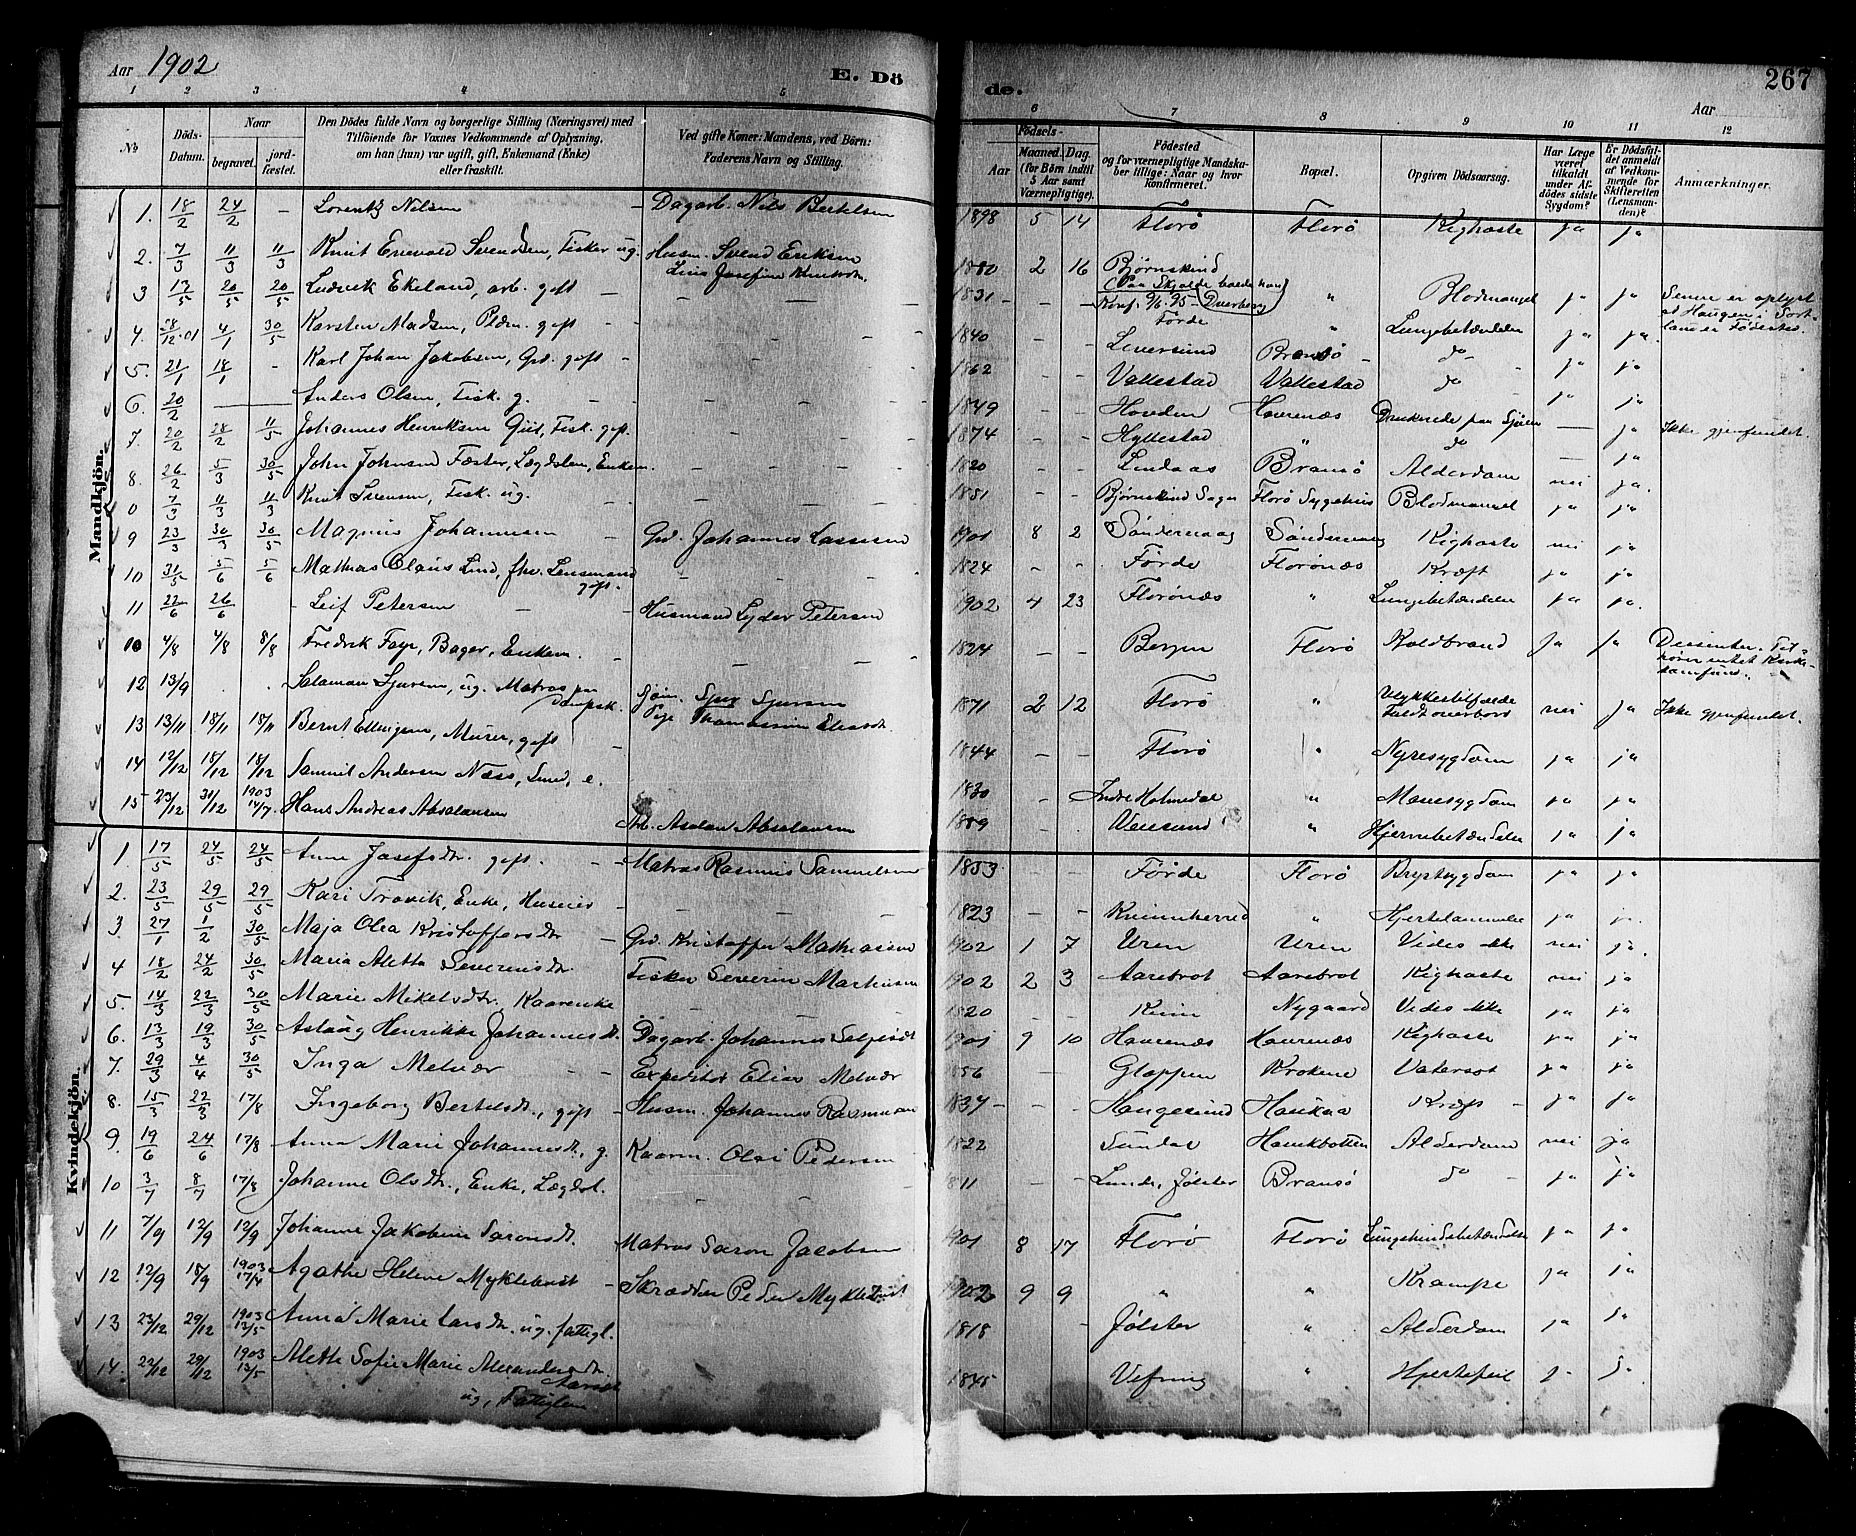 Aar 1902
E. Dö
de.
267
Aar
1 2 3 4 5 6 7 8 9 10 11 12
No
Döds-Datum.
Naar
begravet.
jord-fæstet.
Den Dödes fulde Navn og borgerlige Stilling (Næringsvei) med
Tilföiende for Voxnes Vedkommende af Oplysning,
om han (hun) var ugift, gift, Enkemand (Enke)
eller fraskilt.
Ved gifte Koner: Mandens, ved Börn:
Faderens Navn og Stilling.
Födsels-
Aar
Maaned. Dag.
(for Börn indtil
5 Aar samt
Værnepligtige).
Födested
og for værnepligtige Mandska-
ber tillige: Naar og hvor
Konfirmeret.
Bopæl.
Opgiven Dödsaarsag.
Har Læge
været
tilkaldt
under Af-
dödes sidste
Sygdom?
Er Dödsfal-
det anmeldt
af Vedkom-
mende for
Skifteretten
(Lensman-
den)?
Anmærkninger.
Mandkjön.
1. 18/2 24/2 - Lorentz Nilsen - Dagarb. Nils Bertelsen 1898 5 14 Florö Florö Kighoste ja ja
2. 7/3 11/3 11/3 Knut Enevold Svendsen, Fisker ug. Husm. Svend Eriksen 1880 2 16 Bjørnskind
Lina Josefine Knutsdtr. (Paa Skjolde boede han)
3 13/5 20/5 20/5 Ludvik Ekeland, arb. gift - 1831 - - Konf. 9/6 95 - Dverberg " Blodmangel ja ja Senere er oplyst
at Haugen i Sort-
land er Födested.
4. 28/12 01 4/1 30/5 Karsten Madsen, gift - 1840 Förde " Lungebetændelse ja ja.
5. 21/1 18/1 - Karl Johan Jakobsen, Grd. gift - 1862 - - Leversund Brandsö do ja ja
6. 20/2 - - Anders Olsen, Fisk. g. - 1849 - - Vallestad Vallestad do ja ja
7. 20/2 28/2 11/5 Johannes Henriksen Fisk. gift. 1874 - - Hovden Havrenæs Druknede paa Sjöen - ja Ikke gjenfundet.
8. 26/2 5/3 30/5 John Johnsen Fæster, Lægdslem, Enkem. 1820 - - Hyllestad " do - ja
0 7/3 11/3 11/3 Knut Svensen, Fisk. ug. 1881 - - Lindaas Bransö Alderdom nei ja.
Bjørnskind Florö Sygehus Blodmangel ja ja
9 23/3 30/3 30/5 Magnus Johannesen - Grd. Johannes Lassesen 1901 8 2 Söndervaag Söndervaag Kighoste nei ja
10 31/5 5/6 5/6 Mathias Claus Lind, fhv. Lensmand gift. 1824 - - Förde Florönæs Kræft ja ja
11 22/6 26/6 - Leif Petersen - Husmand Lyder Petersen 1902 4 23 Florönæs " Lungebetændelse ja ja.
10 4/8 4/8 8/8 Fredrik Faye, Bager, Enkem. - 1824 - - Bergen Florö Koldbrand ja ja Dissenter. Til-
hörer intet Kirke-
samfund.
12 13/9 . . Salamon Sjursen, ug. Matros paa Dampsk. Sjöm. Sjur Sjursen 1871 2 12 Florö " Ulykkestilfælde nei ja Ikke gjenfundet.
Pige Thomassine Eliasdt. Faldt overbord
13 13/11 18/11 18/11 Bernt Ellingsen, Murer, gift 1844 - - Florö " Nyresygdom ja ja
14 12/12 18/12 18/12 Samuel Andersen Næss, Smed, e. 1830 - Indre Holmedal " Mavesygdom ja ja
15 23/12 31/12 1903 14/7. Hans Andreas Absalonsen Arb. Absalonsen 1889 " Hjernebetændelse ja ja
Kvindekjön.
1. 17/5 24/5 24/5 Anne Josefsdtr. gift. - - Matros Rasmus Samuelsen 1853 - - Förde Florö Brystsygdom ja ja
2. 23/5 29/5 29/5 Kari Travik, Enke, 1823 - - Kvinnherred " ja ja.
3. 27/1 1/2 30/5 Maja Olea Kristoffersdtr - Grd. Kristoffer Mathiassen 1902 1 7 Uren Uren Vides ikke nei ja.
4 18/2 24/2 30/5 Maria Aletta Severinsdtr. Fisker Severin Markusen 1902 2 3 Aarebrot Aarebrot Kighoste nei ja
5. 14/3 22/3 30/5 Marie Mikelsdtr. Kaarenke - 1820 Kinn Nygaard Vides ikke ja ja
6. 13/3 19/3 30/5 Aslaug Henrikke Johannesdt. Dagarb. Johannes 1901 9 10 Havrenæs Havrenæs Kighoste ja ja
7. 29/3 4/4 30/5 Inga Melvær - - Expeditör Elias Melvær 1856 Gloppen Krokene Vatersot ja ja
8. 15/3 22/3 17/8 Ingeborg Bertelsdt., gift - Husm. Johannes Rasmusen 1837 - - Haugesund Haukaa Kræft - ja ja
9. 19/6 24/6 17/8 Anna Marie Johannesdt, g. Kaarm. Ole Pedersen 1822 Sundal Haukbotten Alderdom nei ja
10 3/7 8/7 17/8 Johanne Olsdtr., Enke, Lægdsl. 1811 - - Lunde, Jölster Bransö do - ja ja
11 7/9 12/9 12/9 Johanne Jakobine Saronsdt. Matros Saron Jacobsen 1901 8 17 Florö Florö ja ja
12 12/9 18/9 1903 17/4 Agathe Helene Myklebust - Skrædder Peder Myklebust 1902 9 9 " " Krampe ja ja
13 23/12 29/12 1903 13/5 Anna Marie Larsdtr. ug. fattigl. 1818 - Jölster " Alderdom ja ja
14. 22/12 29/12 1903 13/5 Alette Sofie Marie Alexandersdtr. 1845 Vefring " Hjertefeil
ug, Fattiglem